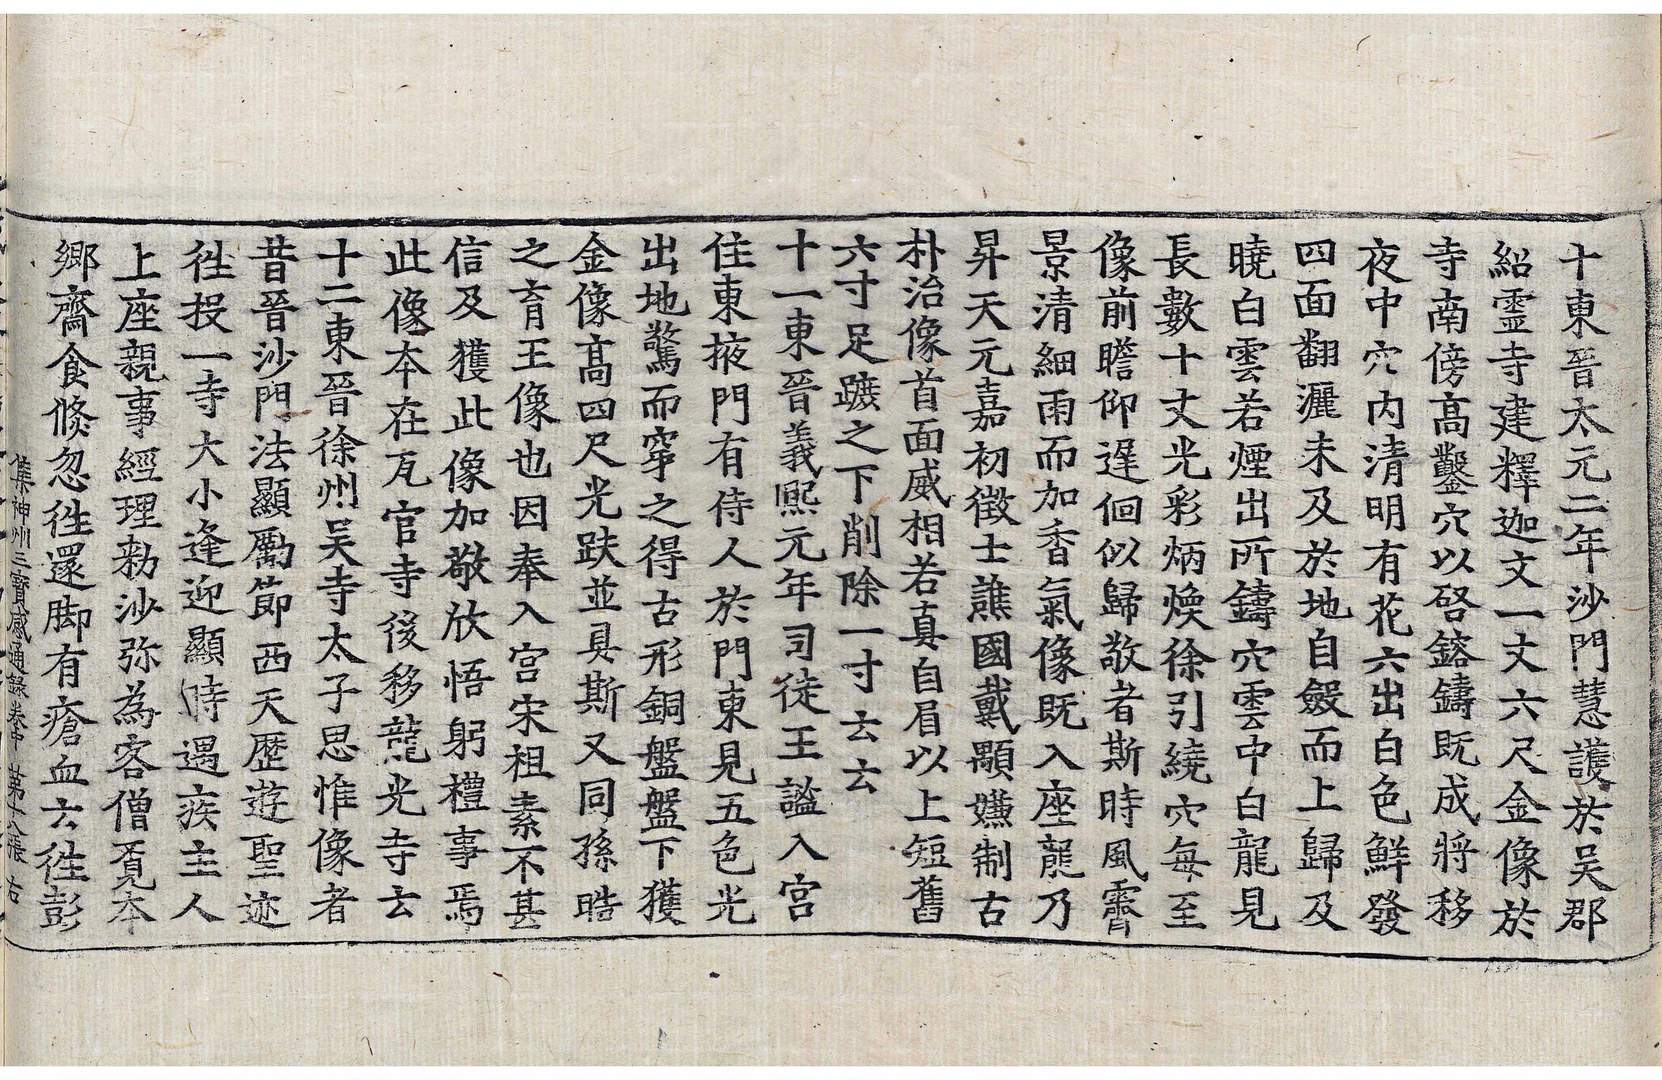 十東晉太元二年沙門慧護於吳郡
紹靈寺建釋迦文一丈六尺金像於
寺南傍高鑿穴以啓鎔鑄旣成將移
夜中穴內清明有花六出白色鮮發
四面翻灑未及於地自斂而上歸及
曉白雲若煙出所鑄穴雲中白龍見
長數十丈光彩炳煥徐引繞穴每至
像前瞻仰遲佪似歸敬者斯時風霽
景清細雨而加香氣像旣入座龍乃
昇天元嘉初徵士譙國戴顒嫌制古
朴治像首面威相若真自眉以上短舊
六寸足蹠之下削除一寸云云
十一東晉義熙元年司徒王謐入宮
住東掖門有侍人於門東見五色光
出地驚而穿之得古形銅盤盤下獲
金像髙四尺光趺並具斯又同孫晧
之育王像也因奉入宮宋祖素不甚
信及獲此像加敬欣悟躬禮事焉
此像本在瓦官寺後移龍光寺云
十二東晉徐州吳寺太子思惟像者
昔晉沙門法顯勵節西天歷遊聖迹
往投一寺大小逢迎顯時遇疾主人
上座親事經理勑沙弥為客僧覓本
鄉齋食倏忽往還脚有瘡血云往彭
集神州三寶感通錄卷中 第十八張 右